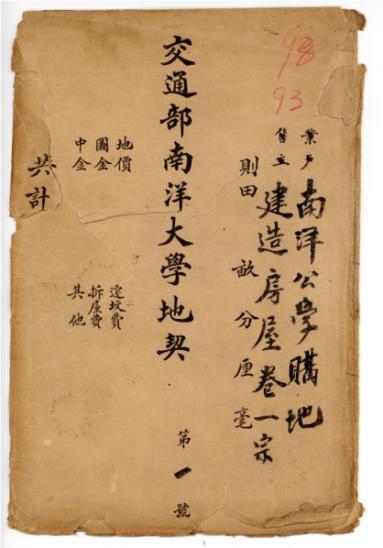 98
93
業戶
南洋公學購地
售主
建造房屋卷一宗
則田 畝 分 厘 毫
交通部南洋大學地契
第一號
地價
圖金
中金
遷坟費
拆屋費
其他
共計